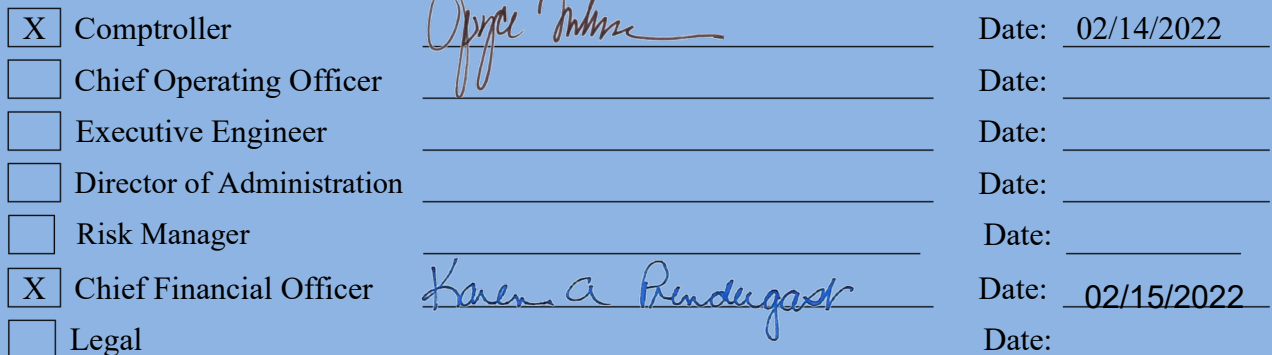 X Comptroller Date: 02/14/2022
Chief Operating Officer Date:
Executive Engineer Date:
Director of Administration Date:
Risk Manager Date:
X Chief Financial Officer Karen A Prendergast Date: 02/15/2022
Legal Date: